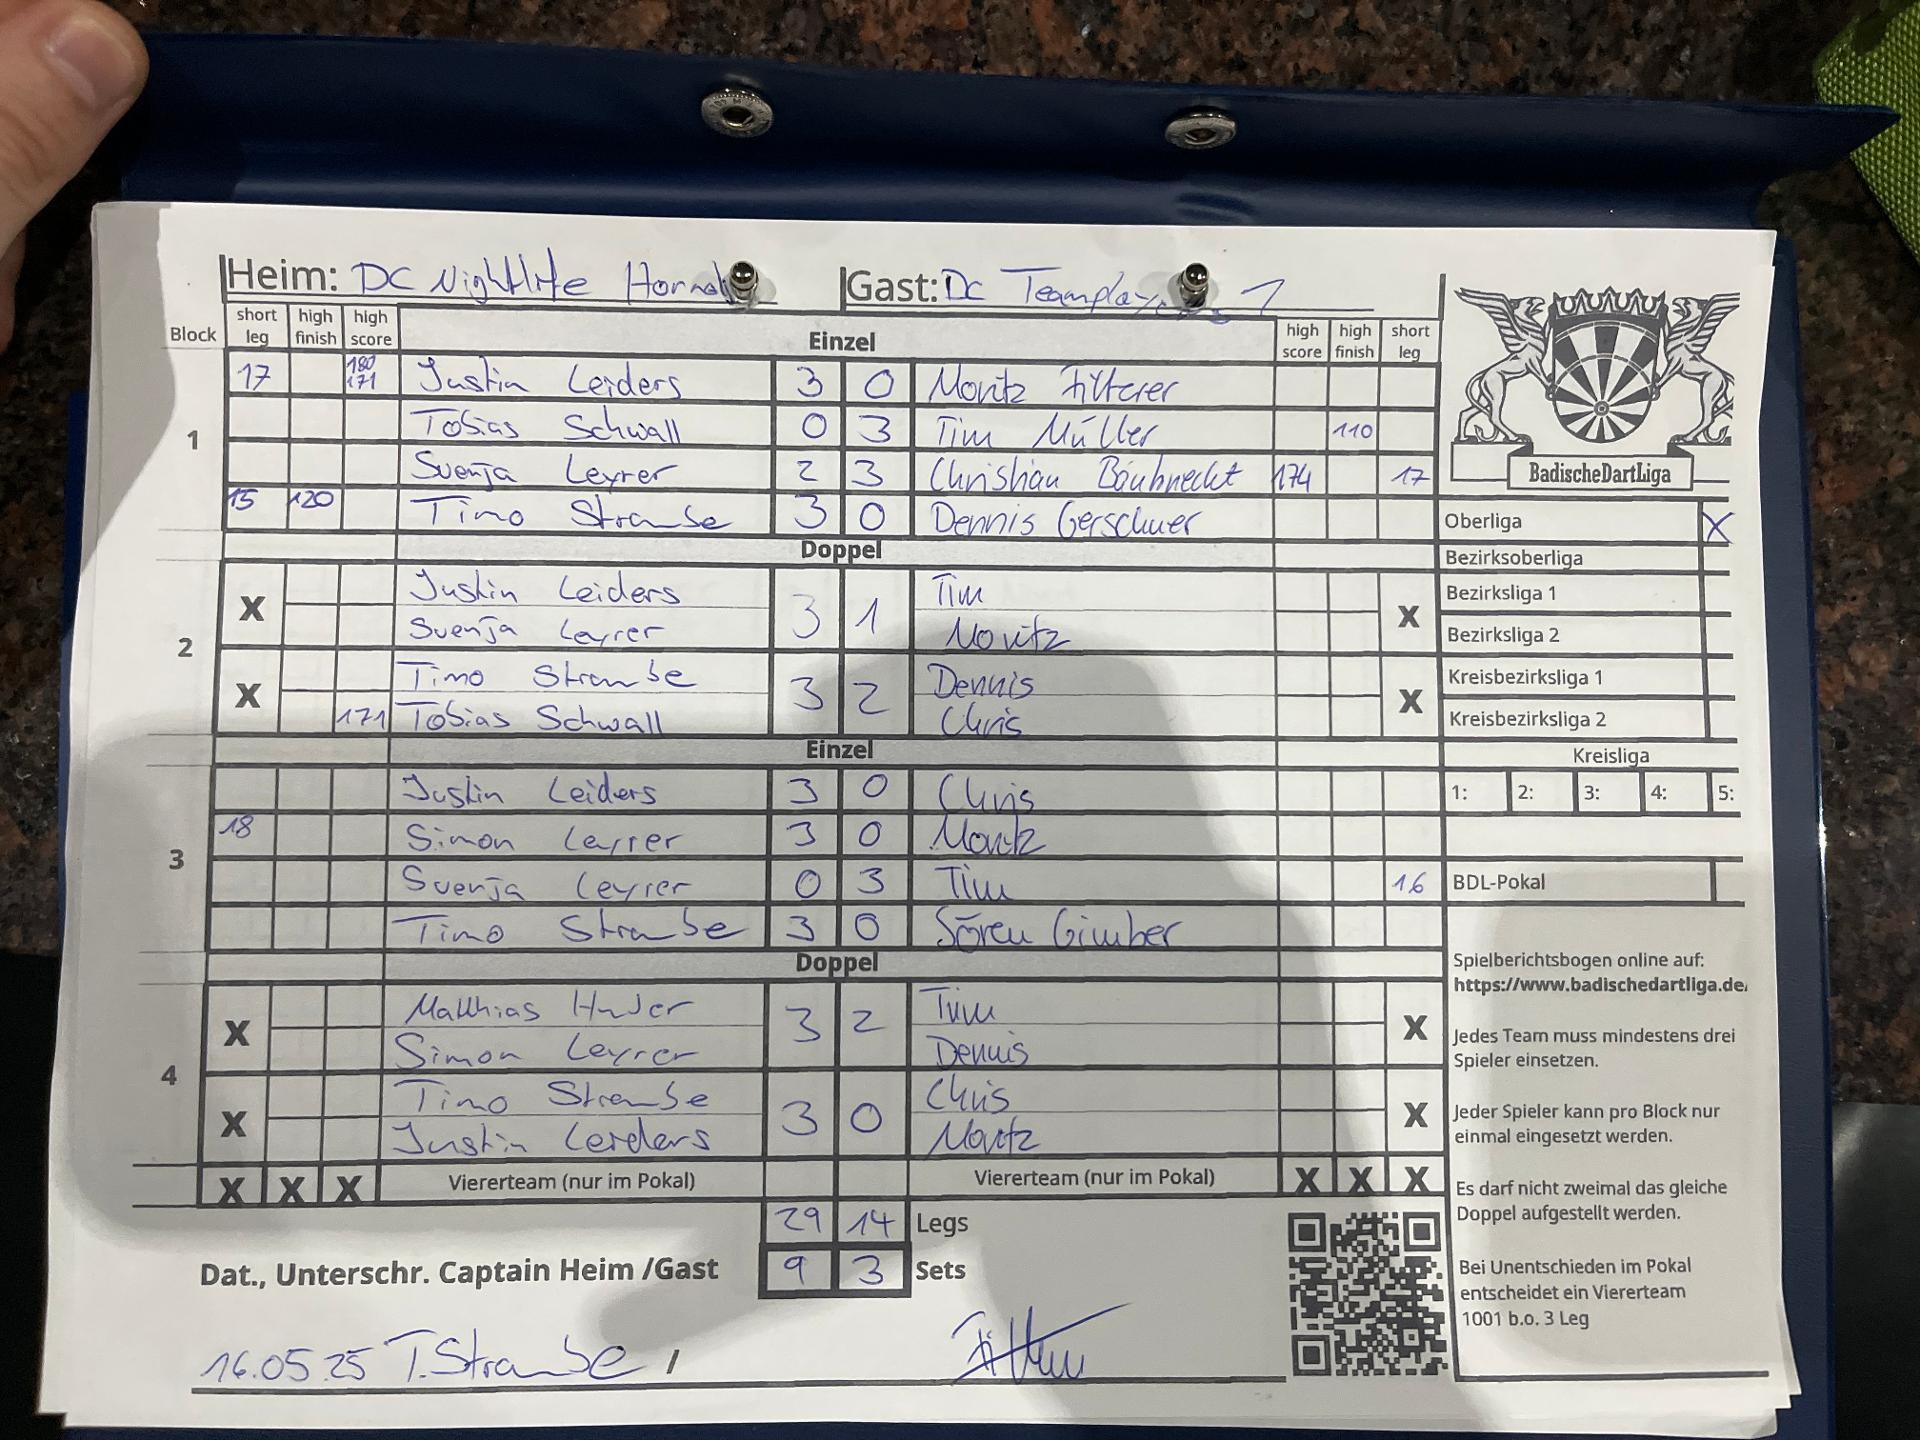 Heim: DC Nightlife Gast: Dc 1
Block short leg high finish high score Einzel high score high finish short leg
1
17 180 171 Justin Leiders 3 0 Moritz Fitterer
Tobias Schwall 0 3 Tim Müller 110
Svenja Leyrer 2 3 Christian 174 17
15 120 Timo Straube 3 0 Dennis
Doppel
2
X Justin Leiders 3 1 Tim X
Svenja Leyrer Moritz
X Timo Straube 3 2 Dennis X
171 Tobias Schwall Chris
Einzel
3
Justin Leiders 3 0 Chris
18 Simon Leyrer 3 0 Moritz
Svenja Leyrer 0 3 Tim 16
Timo Straube 3 0 Sören Gimber
Doppel
4
X Matthias Huber 3 2 Tim X
Simon Leyrer Dennis
X Timo Straube 3 0 Chris X
Justin Leiders Moritz
X X X Viererteam (nur im Pokal) Viererteam (nur im Pokal) X X X
29 14 Legs
9 3 Sets
Dat., Unterschr. Captain Heim /Gast
16.05.25 T.Straube /
BadischeDartLiga
Oberliga X
Bezirksoberliga
Bezirksliga 1
Bezirksliga 2
Kreisbezirksliga 1
Kreisbezirksliga 2
Kreisliga
1: 2: 3: 4: 5:
BDL-Pokal
Spielberichtsbogen online auf:
https://www.badischedartliga.de/
Jedes Team muss mindestens drei
Spieler einsetzen.
Jeder Spieler kann pro Block nur
einmal eingesetzt werden.
Es darf nicht zweimal das gleiche
Doppel aufgestellt werden.
Bei Unentschieden im Pokal
entscheidet ein Viererteam
1001 b.o. 3 Leg